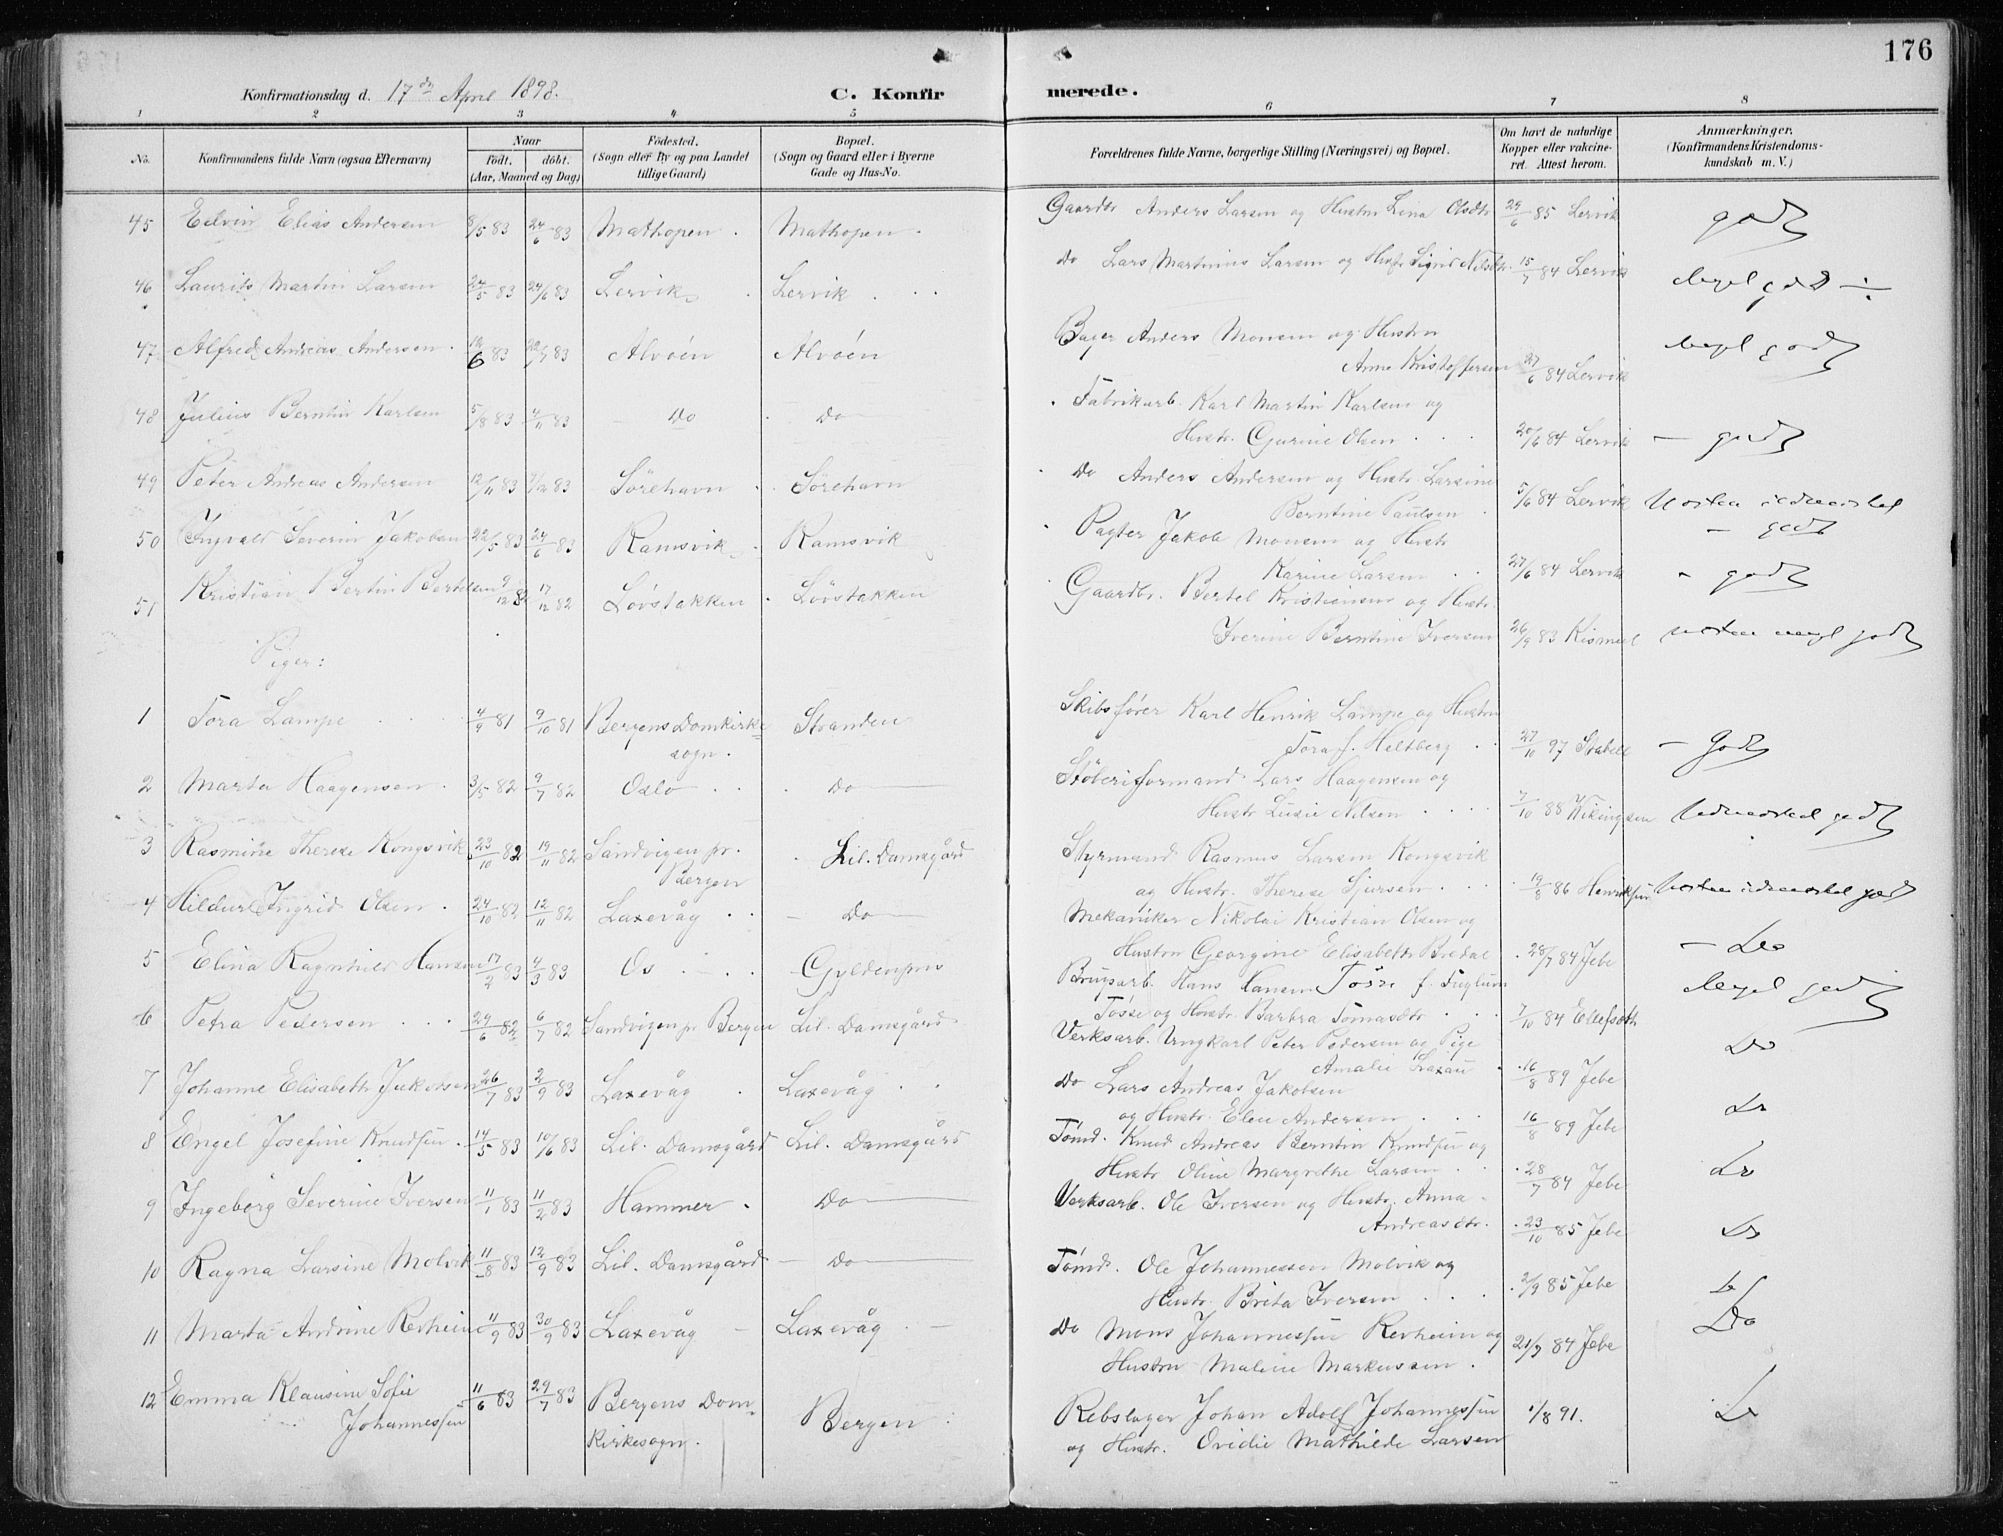 176
Konfirmationsdag d. 17de April 1898.
C. Konfirmerede.
1 2 3 4 5 6 7 8
No.
Konfirmandens fulde Navn (ogsaa Efternavn)
Naar
født. døbt.
(Aar, Maaned og Dag)
Fødested.
(Sogn eller By og paa Landet
tillige Gaard)
Bopæl.
(Sogn og Gaard eller i Byerne
Gade og Hus-No.
Forældrenes fulde Navne, borgerlige Stilling (Næringsvei) og Bopæl.
Om havt de naturlige
Kopper eller vakcine-
ret. Attest herom.
Anmærkninger.
(Konfirmandens Kristendoms-
kundskab m. V.)
45 Edvin Elias Andersen 8/5 83 24/6 83 Mathopen. Mathopen.
Gaardbr Anders Larsen og Hustru Lina Olsdtr 29/6 85 Lervik godt
46 Laurits Martin Larsen 24/5 83 24/6 83 Lervik. Lervik
Do Lars Martinus Larsen og Hustr Sigrid Nilsdtr. 15/7 84 Lervik Meget godt
47 Alfred Andreas Andersen. 12/6 83 Alvøen Alvøen
Bager Anders Monsen og Hustru
Anne Kristoffersen 27/6 84 Lervik meget godt
48 Julius Berntin Karlsen 5/8 83 4/11 83 Do Do
Fabrikarb. Karl Martin Karlsen og
Hustr. Gurine Olsen 20/6 84 Lervik godt
49 Peter Andreas Andersen 12/11 83 83 Sørehavn Sørehavn
Do Anders Andersen og Hustr. Larsine
Berntine Paulsen 5/6 84 Lervik
godt
50 Ingvald Severin Jakobsen 22/5 83 24/6 83 Ramsvik Ramsvik
Pagter Jakob Monsen og Hustr
Karine Larsen 27/6 84 Lervik godt
51 Kristian Bertin Bertelsen 9/12 82 17/12 82 Løvstakken Løvstakken
Gaardbr. Bertel Kristiansen og Hustr.
Iverine Berntine Iversen 26/9 83 næsten meget godt
Piger:
1 Tora Lampe 4/9 81 9/10 81 Bergens Domkirke-
sogn. Stranden
Skibsfører Karl Henrik Lampe og Hustru
Tora f. Heltberg 27/10 97 Stabell Godt
2 Marta Haagensen. 3/5 82 9/7 82 Oslo Do
Støberiformand Lars Haagensen og
Hustr Lusie Nilsen 7/10 88 Wikingsen Udmærket godt
3 Rasmine Therese Kongsvik 23/10 82 19/11 82 Sandvigen pr.
Bergen Lil. Damsgård
Styrmand Rasmus Larsen Kongsvik
og Hustr. Therese Sjursen 19/8 86 Henriksen Næsten udmærket godt
4 Hildur Ingrid Olsen. 24/10 82 12/11 82 Laxevåg Do
Mekaniker Nikolai Kristian Olsen og
Hustru Georgine Elisabeth Bredal 28/7 84 Jebe Do
5 Elina Ragnhild Hansen 17/2 83 4/3 83 Os Gyldenpris
Brugsarb. Hans Hansen Tøsse f. Fuglum
Tøsse og Hustr. Barbra Tomasdtr 7/10 84 Ellefseth Meget godt
6 Petra Pedersen 29/6 82 6/7 82 Sandvigen pr Bergen Lil. Damsgård
Verksarb. Ungkarl Peter Pedersen og Pige
Amalie Laxau 16/8 89 Jebe Do
7 Johanne Elisabeth Jakobsen 26/7 83 2/9 83 Laxevåg Laxevåg
Do Lars Andreas Jakobsen
og Hustr. Elen Andersen 16/8 89 Jebe Do
8 Engel Josefine Knudsen. 14/5 83 10/6 83 Lil. Damsgård Lil. Damsgård
Tømd. Knud Andreas Berntin Knudsen og
Hustr Oline Margrethe Larsen 28/7 84 Jebe Do
9 Ingeborg Severine Iversen 11/1 83 11/2 83 Hammer. Do
Verksarb. Ole Iversen og Hustr. Anna
Andreasdtr. 23/10 85 Jebe Do
10 Ragna Larsine Molvik 11/8 83 12/9 83 Lil. Damsgård Do
Tømd. Ole Johannessen Molvik og
Hustr. Brita Iversen 2/9 85 Jebe Do
11 Marta Andrine Revheim 11/9 83 30/9 83 Laxevåg Laxevåg
Do Mons Johannessen Revheim og
Hustru Maline Markussen. 21/7 84 Jebe Do
12 Emma Klausine Sofie
Johannessen 11/6 83 29/7 83 Bergens Dom-
kirkesogn. Bergen
Rebslager Johan Adolf Johannessen
og Hustr. Ovidie Mathilde Larsen 1/8 91. Do